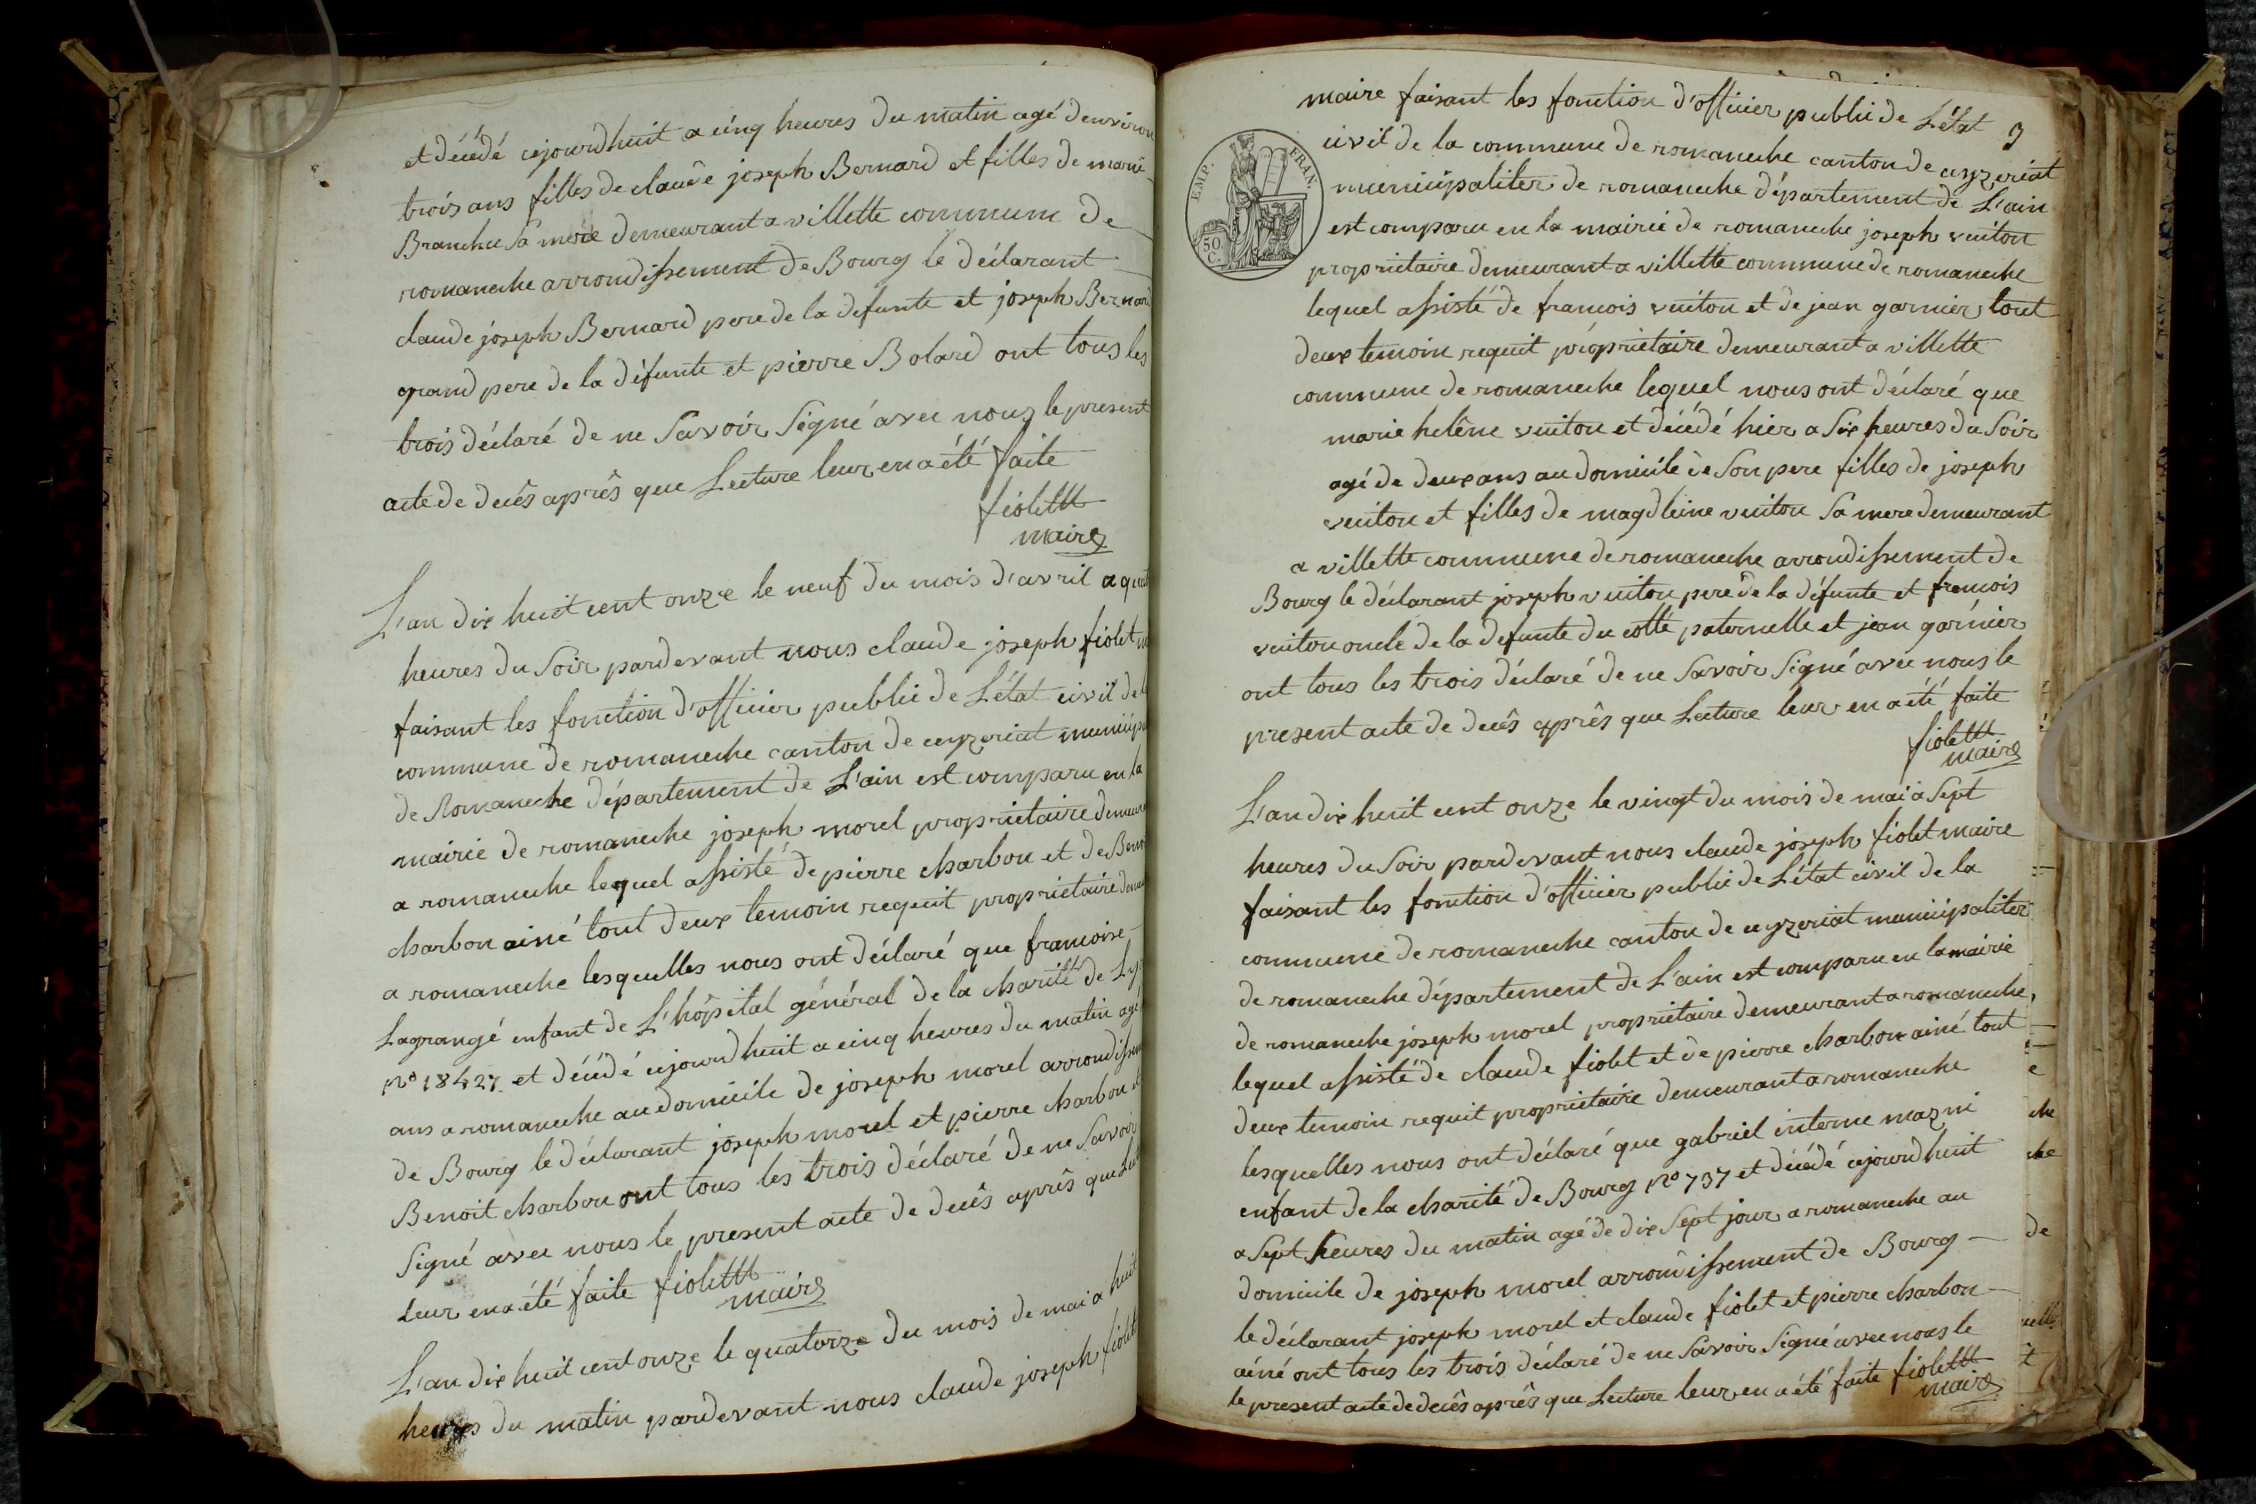 et décédé cejourdhuit a cinq heures du matin agé denviron
trois ans filles de claude joseph Bernard et filles de marie
Branche sa mere demeurant a villette commune de
romaneche arrondissement de Bourg le déclarant
claude joseph Bernard pere de la defunte et joseph Bernard
grand pere de la défunte et pierre Bolard ont tous les
trois déclaré de ne Savoir Signé avec nous le present
acte de decês aprês que Lecture leur en a été faite
fiolet
maire
L'an dix huit cent onze le neuf du mois d'avril a
heures du Soir pardevant nous claude joseph fiolet
faisant les fonction d'officier public de L'état civil de
commune de romaneche canton de ceyzeriat
de Romaneche département de L'ain est comparu en la
mairie de romaneche joseph morel proprietaire
a romaneche lequel assisté de pierre charbon et de
charbon ainé tout deux temoin requit proprietaire
a romaneche lesquelles nous ont déclaré que francoise
Lagrangé enfant de L'hôpital général de la charité de
no 18427 et décédé cejourdhuit a cinq heures du matin agé
ans a romaneche au domicile de joseph morel
de Bourg le déclarant joseph morel et pierre charbon
Benoit charbon ont tous les trois déclaré de ne Savoir
Signé avec nous le present acte de decês aprês que
leur en a été faite fiolet
maire
L'an dix huit cent onze le quatorze du mois de mai a huit
heures du matin pardevant nous claude joseph fiolet
maire faisant les fonction d'officier public de L'état
3
civil de la commune de romaneche canton de ceyzeriat
EMP. FRAN.
50 C.
municipaliter de romaneche département de L'ain
est comparu en la mairie de romaneche joseph vuiton
proprietaire demeurant a villette commune de romaneche
lequel assisté de francois vuiton et de jean garnier tout
deux temoin requit proprietaire demeurant a villette
commune de romaneche lequel nous ont déclaré que
marie helêne vuiton et décédé hier a Six heures du Soir
agé de deux ans au domicile de Son pere filles de joseph
vuiton et filles de magdleine vuiton Sa mere demeurant
a villette commune de romaneche arrondissement de
Bourg le déclarant joseph vuiton pere de la défunte et francois
vuiton oncle de la defunte du cotté paternelle et jean garnier
ont tous les trois déclaré de ne Savoir Signé avec nous le
present acte de decês aprês que Lecture leur en a été faite
fiolet
maire
L'an dix huit cent onze le vingt du mois de mai a Sept
heures du Soir pardevant nous claude joseph fiolet maire
faisant les fonction d'officier public de L'état civil de la
commune de romaneche canton de ceyzeriat municipaliter
de romaneche département de L'ain est comparu en la mairie
de romaneche joseph morel proprietaire demeurant a romaneche
lequel assisté de claude fiolet et de pierre charbon ainé tout
deux temoin requit proprietaire demeurant a romaneche
lesquelles nous ont déclaré que gabriel interne mazni
enfant de la charité de Bourg no 737 et décédé cejourdhuit
a Sept heures du matin agé de dix Sept jour a romaneche au
domicile de joseph morel arrondissement de Bourg
le déclarant joseph morel et claude fiolet et pierre charbon
ainé ont tous les trois déclaré de ne Savoir Signé avec nous le
le present acte de decês aprês que Lecture leur en a été faite fiolet
maire